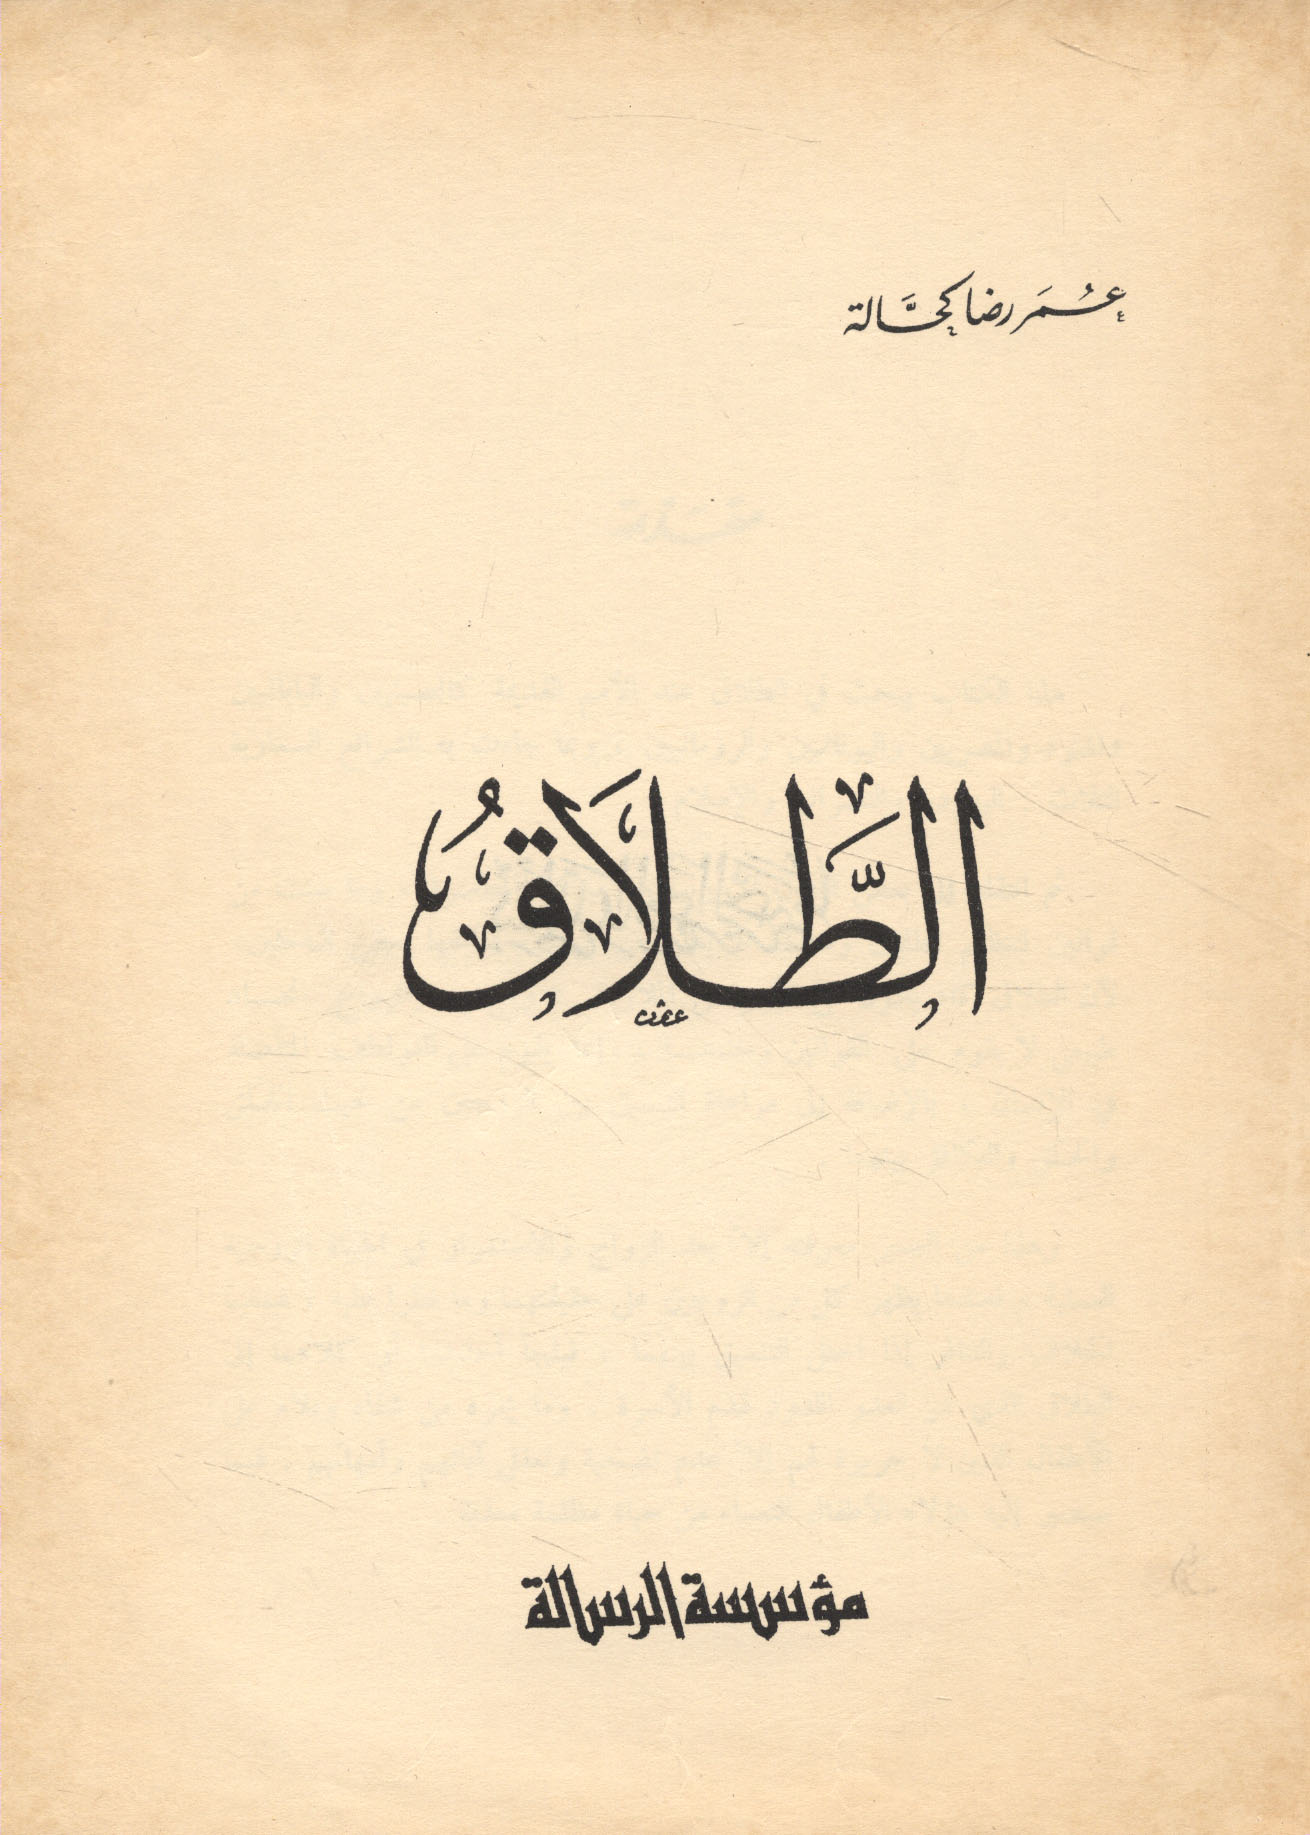 عُمَر رضا كحَّالة
الطَّلَاقُ
مؤسسة الرسالة